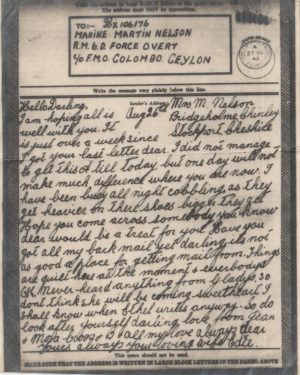 The address must NOT be typewritten.
TO:-
Bx 106176
MARINE MARTIN NELSON
R.M.G.D. FORCE OVERT
C/O F.M.O. COLOMBO. CEYLON
Write the message very plainly below this line.
Sender's Address
Mrs M. Nelson
Bridgeholme Chinley
Stockport, Cheshire
Aug 26th
Hello Darling,
I am hoping all is
well with you. It
is just over a week since
I got your last letter dear. I did not manage
to get this off till today but one day will not
make much difference where you are now. I
have been busy all night cobbling, as they
get heavier on there shoes bigger they get
Hope you come across somebody you know
dear would be a treat for you. Have you
got all my back mail yet darling, its not
as good a place for getting mail from. Things
are quiet here at the moment & everbodys
OK. Never heard anything from Gladys, so
dont think she will be coming sweetheart. I
shall know when Ethel writs anyway. So do
look after yourself darling, love from Jean
& all my love always dear
Yours always Your loving wife Edie.
This space should not be used.
MAKE SURE THAT THE ADDRESS IS WRITTEN IN LARGE BLOCK LETTERS IN THE PANEL ABOVE